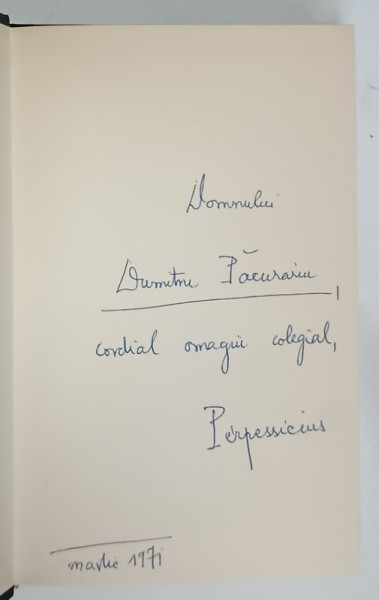 Domnului
Dumitru Păcurariu,
cordial omagiu colegial,
Perpessicius
martie 1971